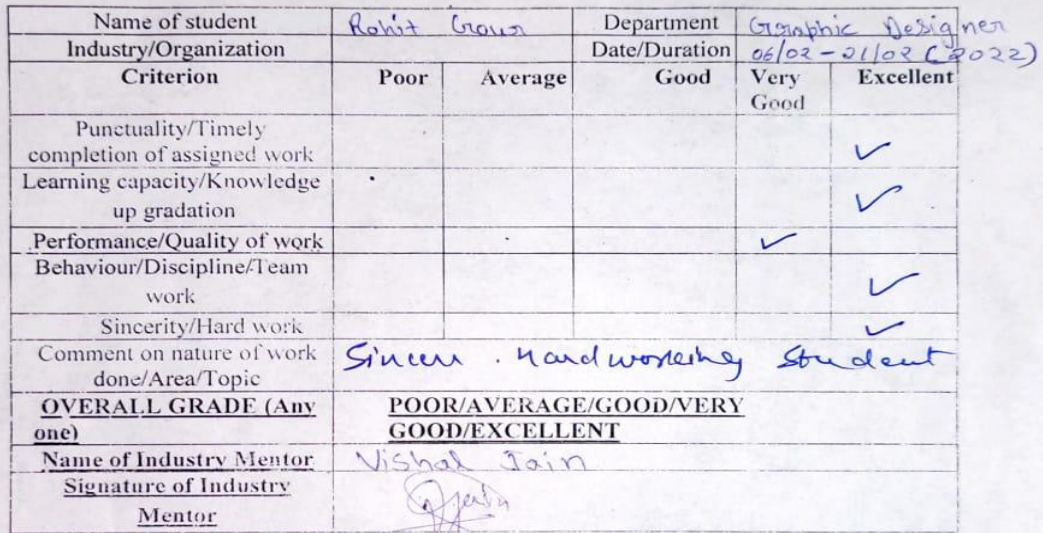 Name of student Rohit Gour Department Graphic Designer
Industry/Organization Date/Duration 06/02 - 21/02 (2022)
Criterion Poor Average Good Very Good Excellent
Punctuality/Timely
completion of assigned work ✓
Learning capacity/Knowledge
up gradation ✓
Performance/Quality of work ✓
Behaviour/Discipline/Team
work ✓
Sincerity/Hard work ✓
Comment on nature of work Sincere . Hardworking Student
done/Area/Topic
OVERALL GRADE (Any POOR/AVERAGE/GOOD/VERY
one) GOOD/EXCELLENT
Name of Industry Mentor Vishal Jain
Signature of Industry
Mentor